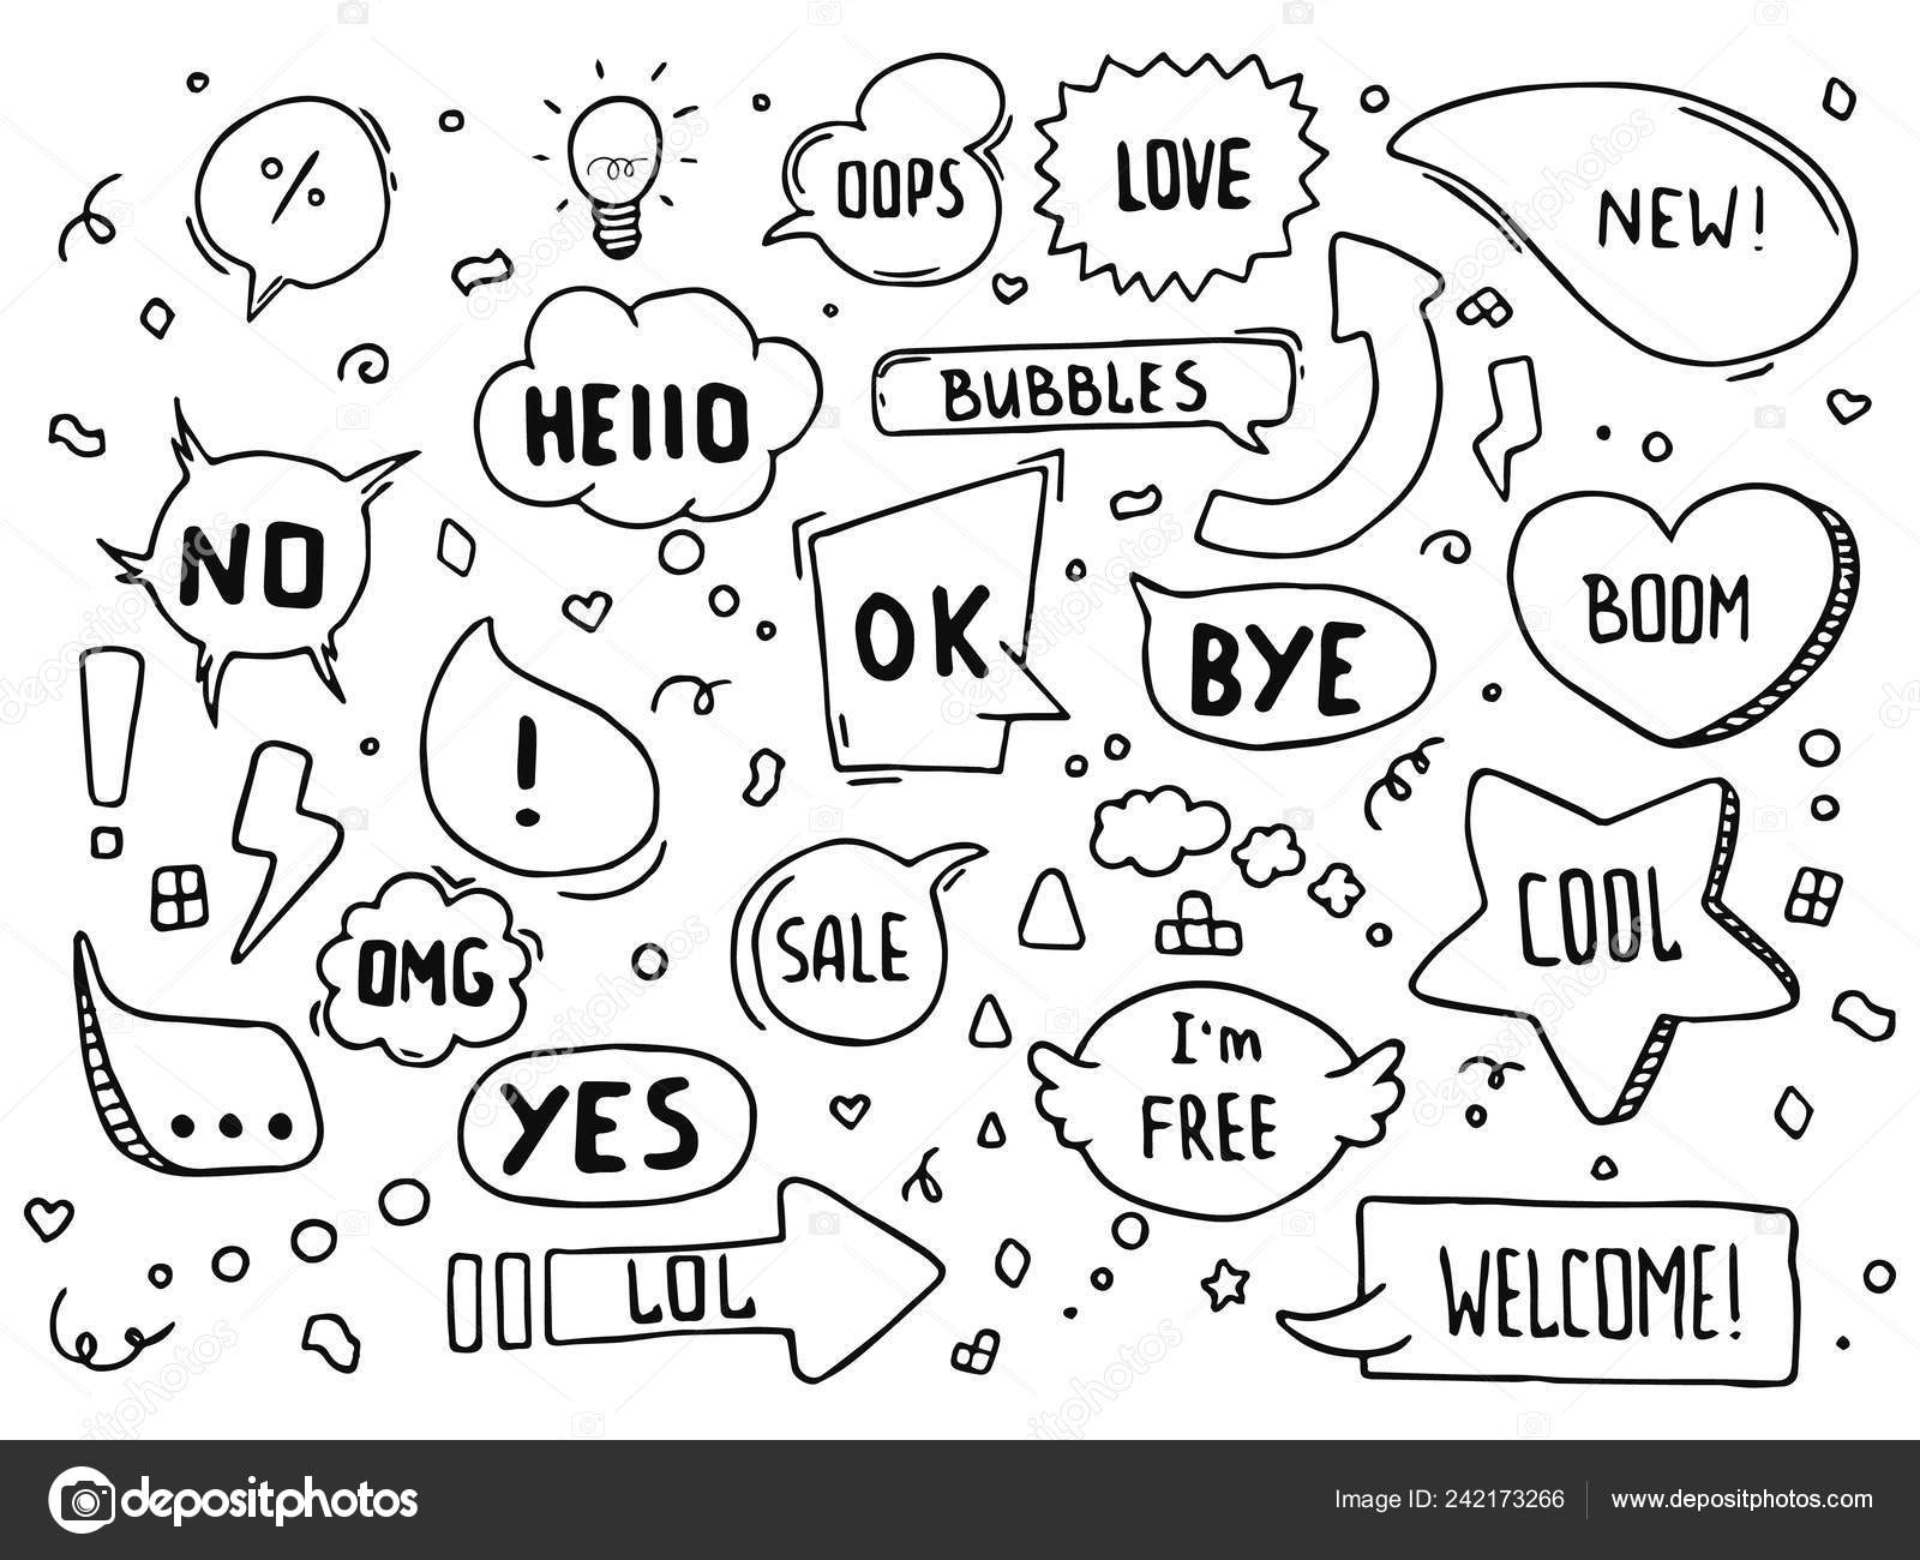 %
OOPS
LOVE
NEW!
HEllO
BUBBLES
NO
OK
BYE
BOOM
!
!
OMG
SALE
COOL
I'm
FREE
...
YES
LOL
WELCOME!
depositphotos
Image ID: 242173266
www.depositphotos.com